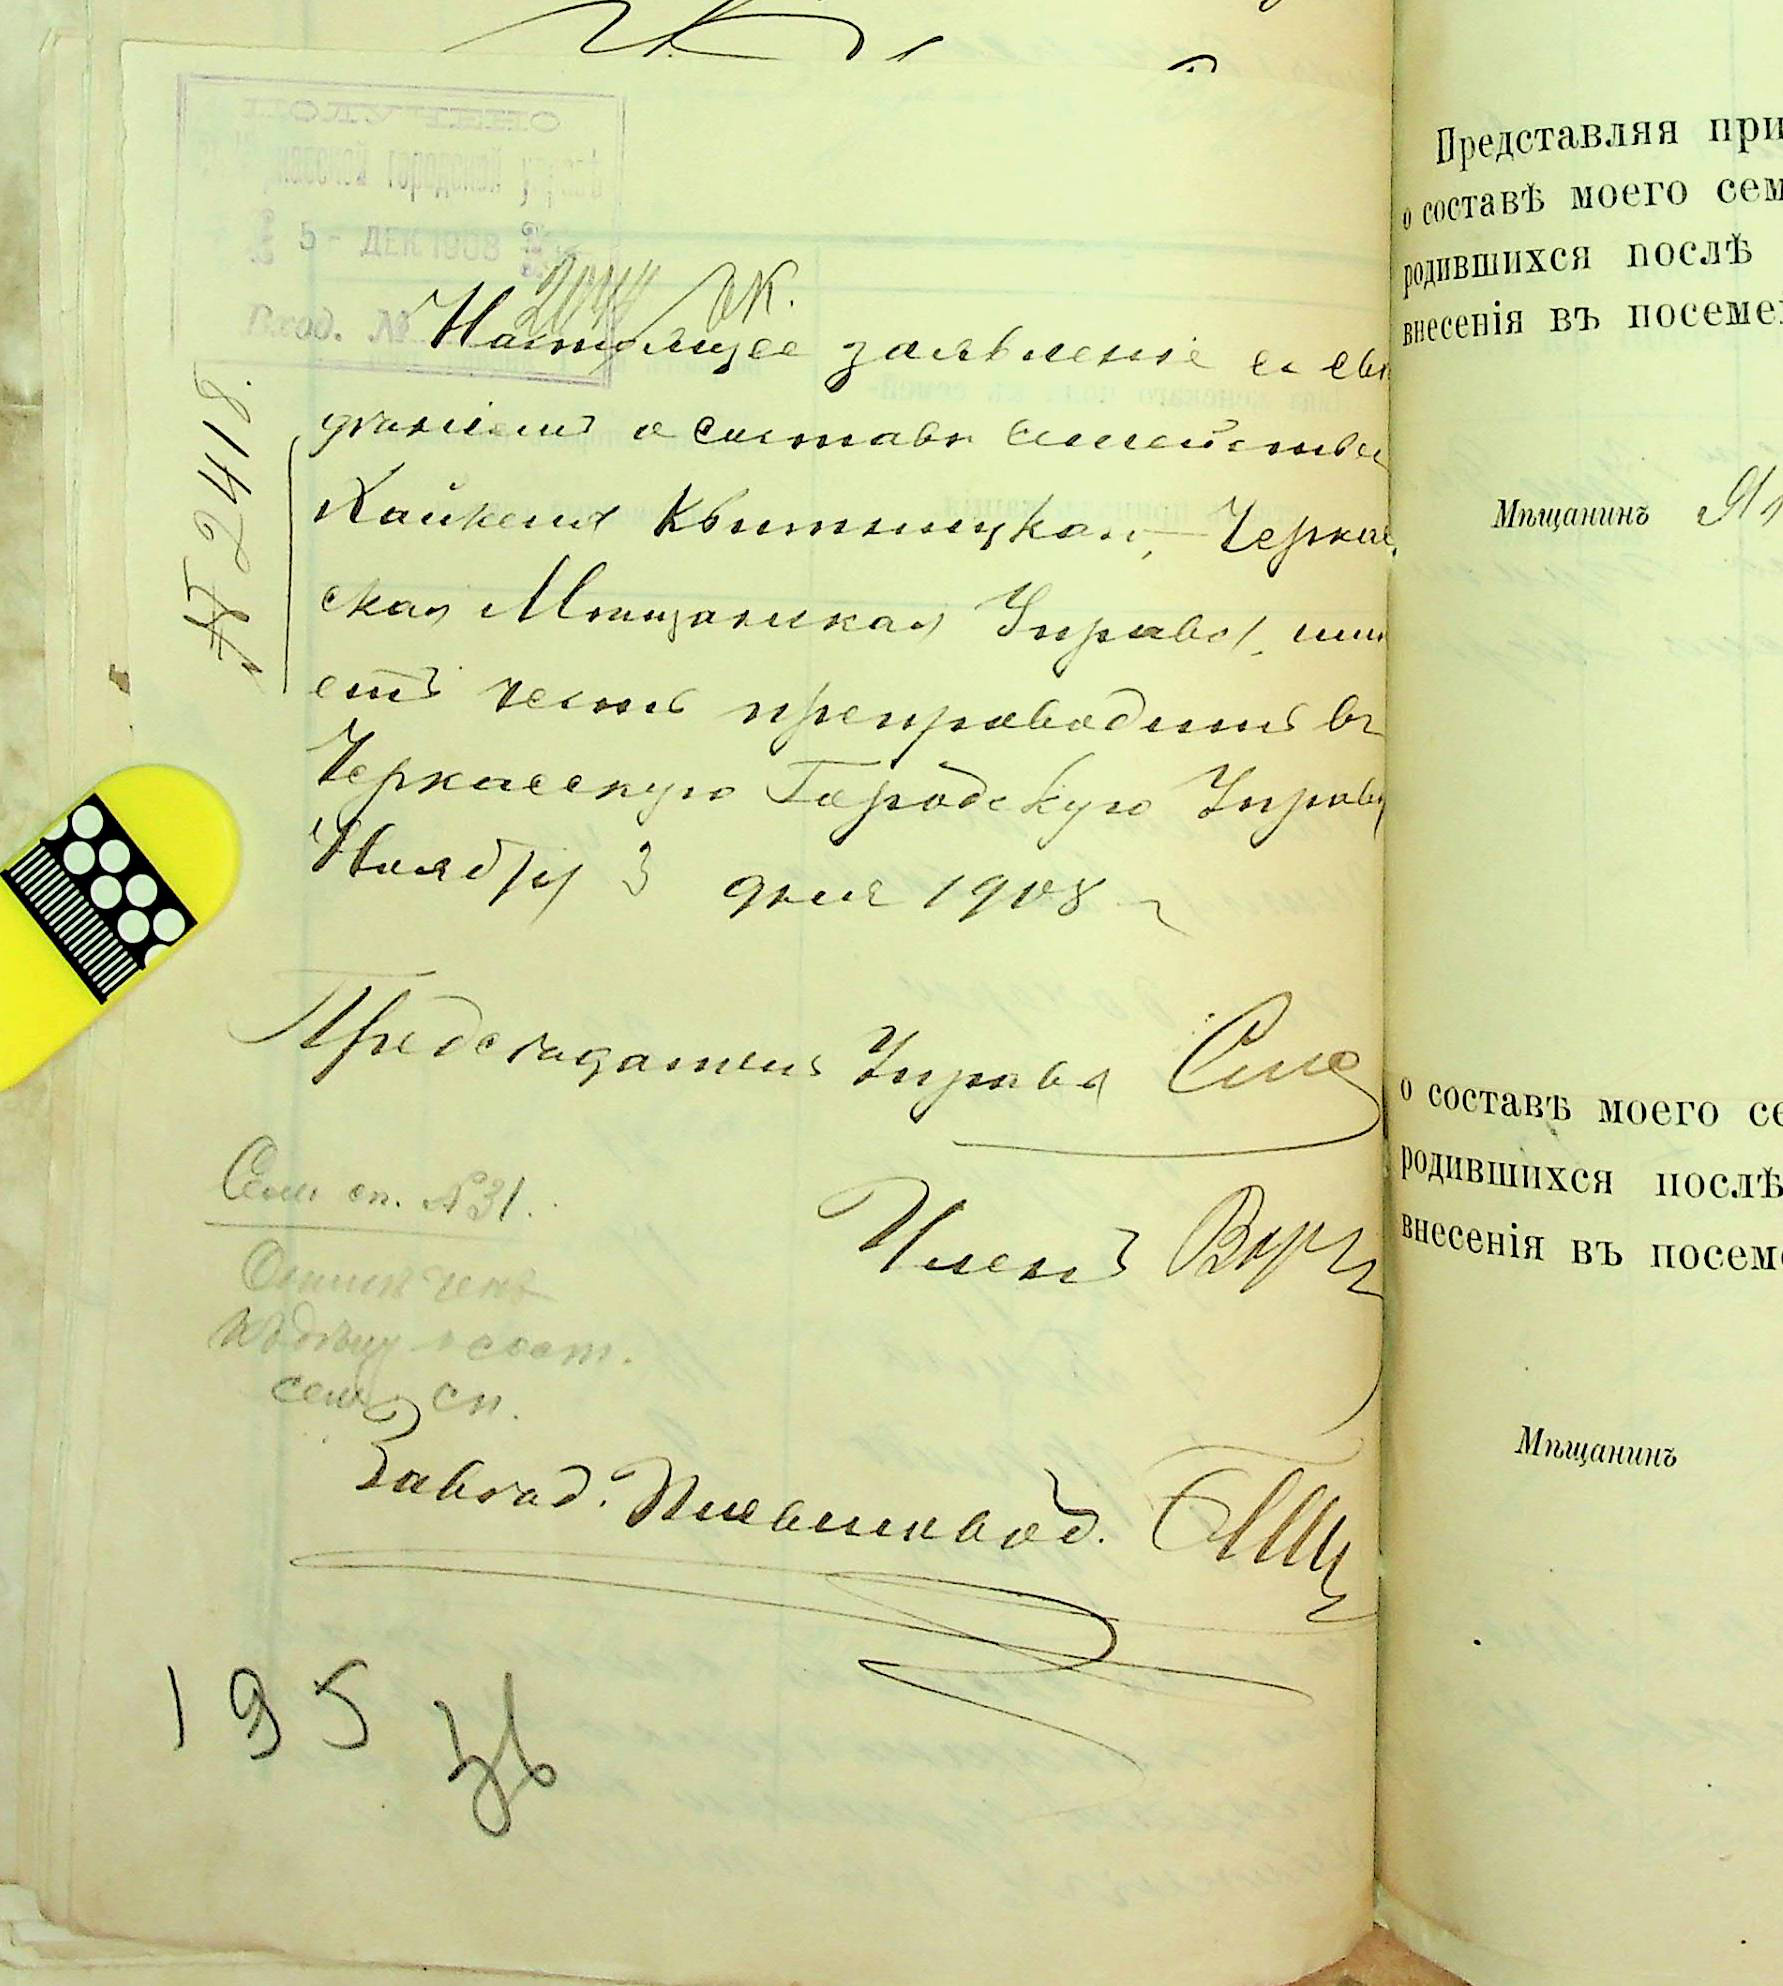 ПОЛУЧЕНО
городской
5 - ДЕК 1908
Вход. №
2044
№ 2418.
Настоящее заявленіе съ свѣ
дѣніемъ о составѣ семейства
Хайкеля Квитницкаго, Черкас
ская Мѣщанская Управа, имѣ
етъ честь препроводить въ
Черкасскую Городскую Управу
Ноября 3 дня 1908 г
Предсѣдатель Управы
Сем. сп. № 31.
Членъ
сост.
сем. сп.
Завѣд. Письмовод.
195
Представляя при
о составѣ моего сем
родившихся послѣ
внесенія въ посеме
Мѣщанинъ
о составѣ моего се
родившихся послѣ
внесенія въ посем
Мѣщанинъ